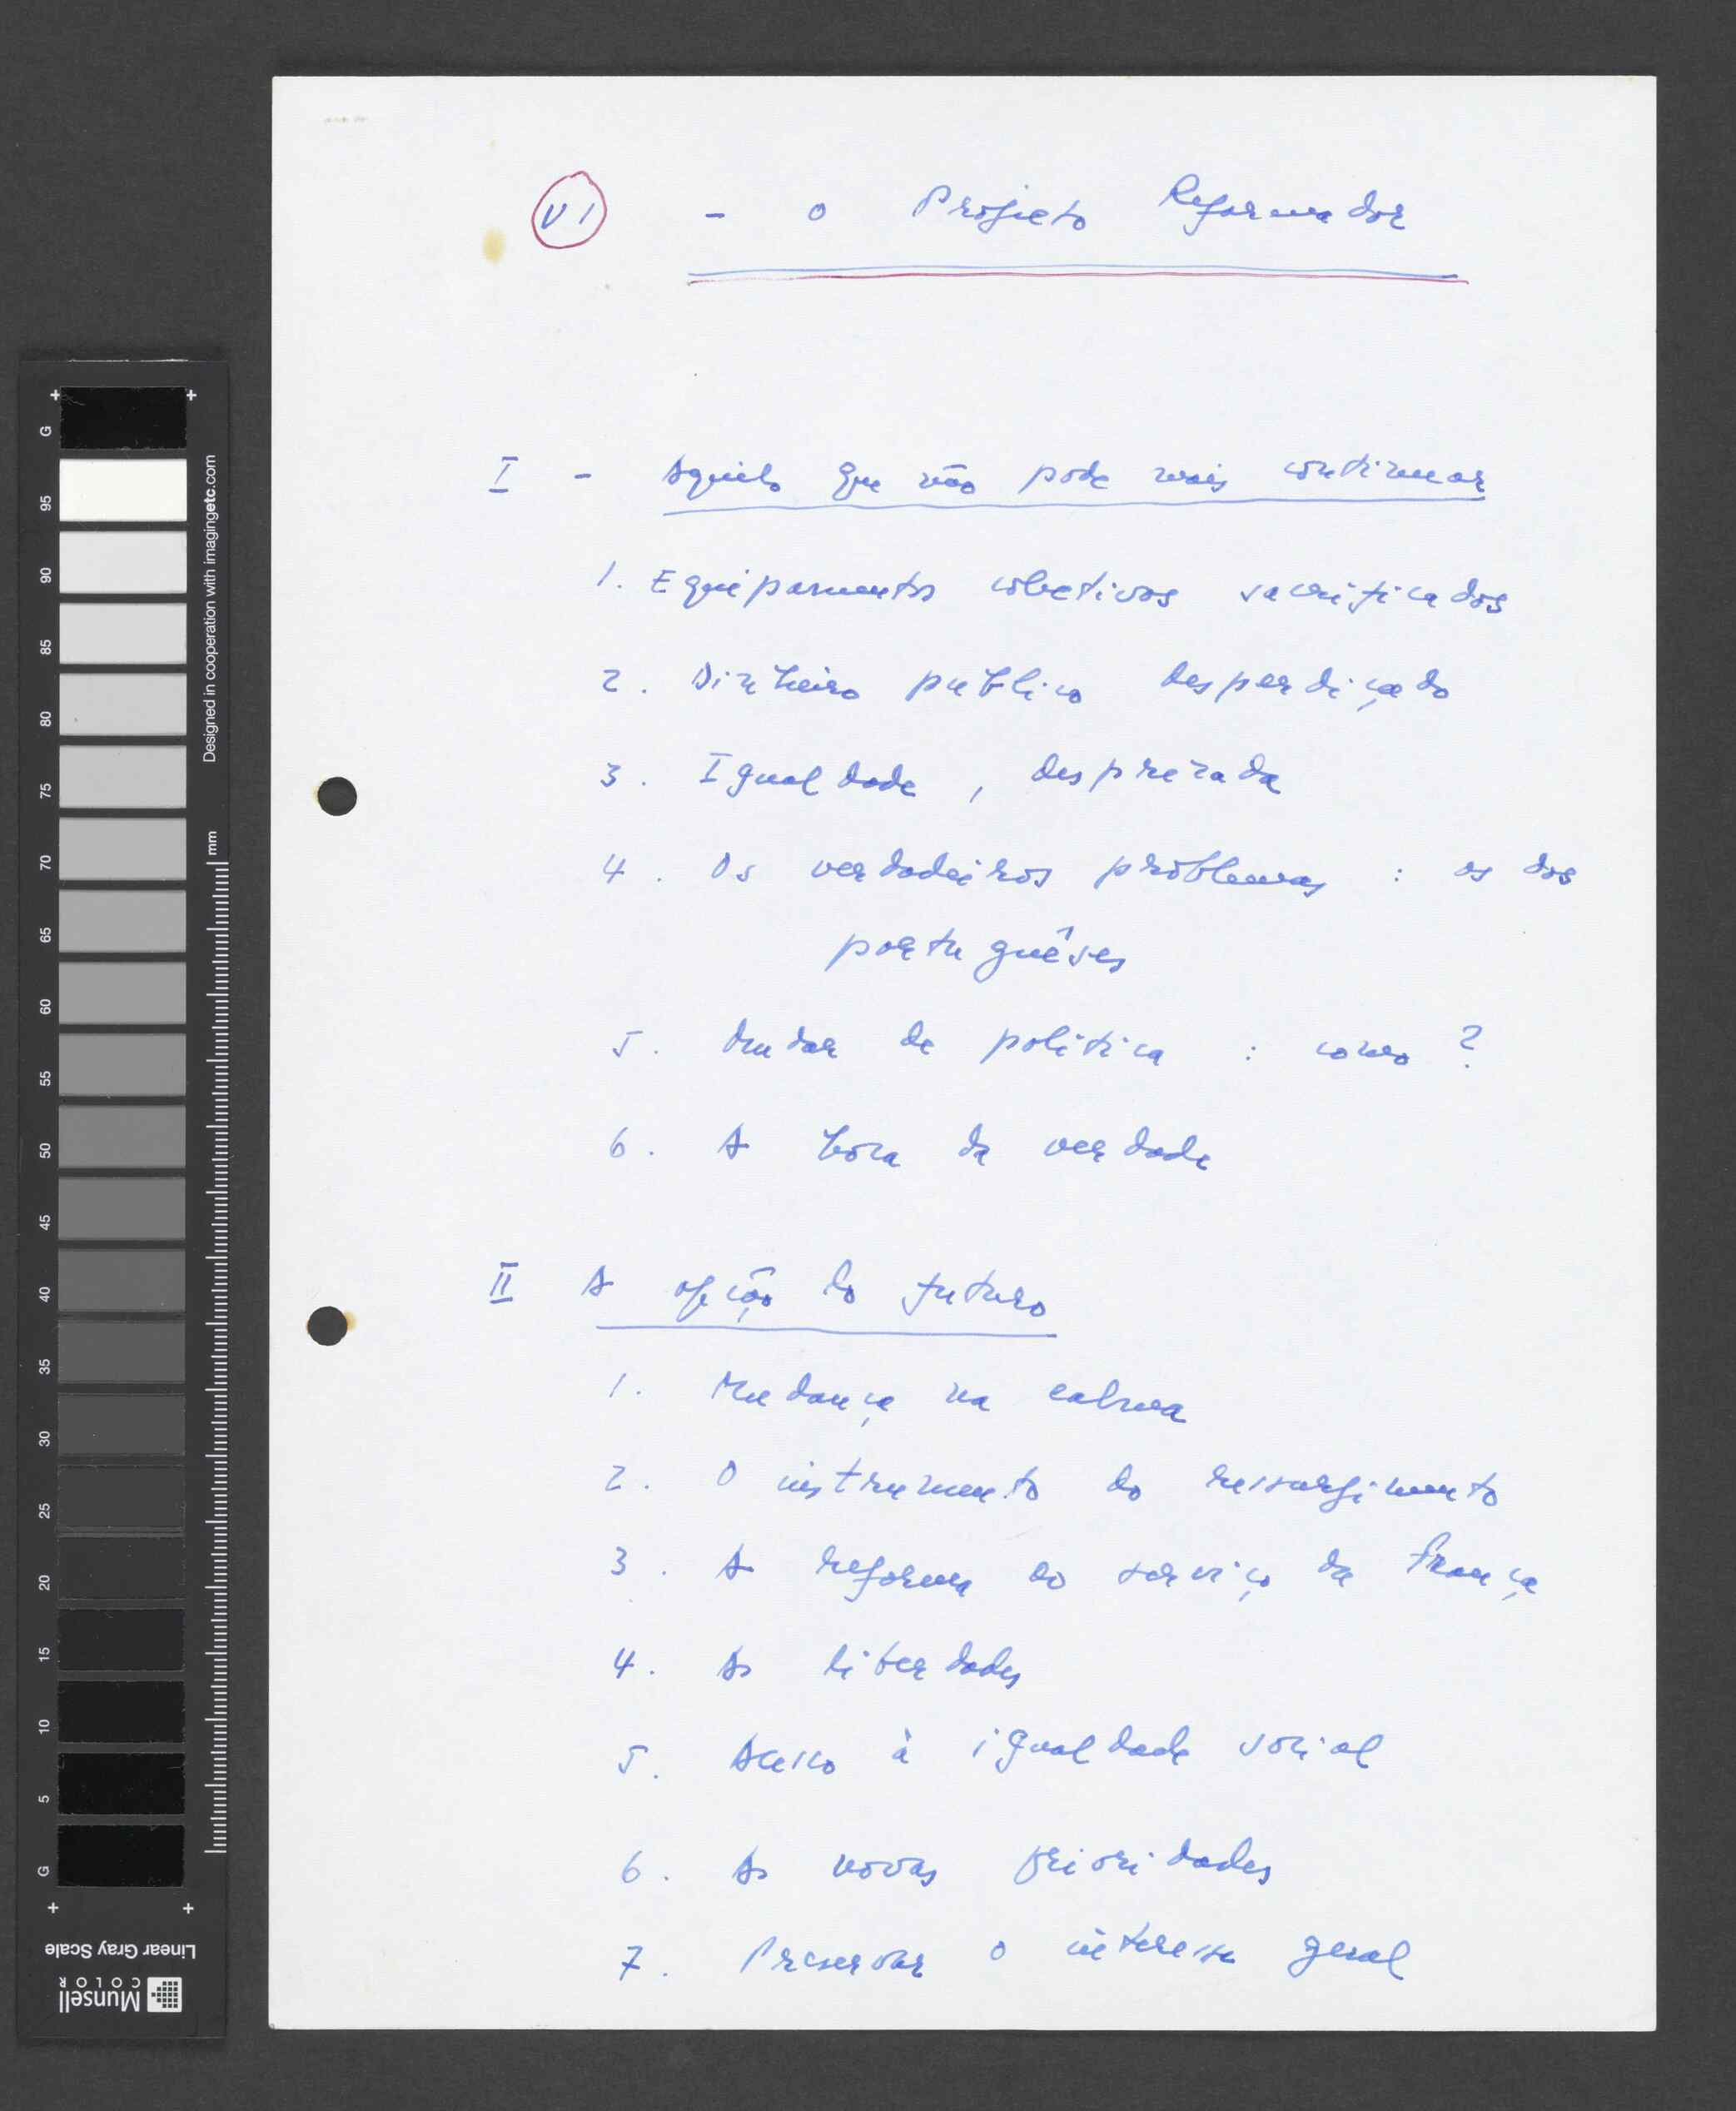 VI - O Projeto Reformador
I - Aquilo que não pode mais continuar
1. Equipamentos coletivos sacrificados
2. Dinheiro publico desperdiçado
3. Igualdade, desprezada
4. Os verdadeiros problemas : os dos
portuguêses
5. Mudar de politica : como ?
6. A hora da verdade
II A opção do futuro
1. Mudança na calma
2. O instrumento do ressurgimento
3. A reforma ao serviço da França
4. As liberdades
5. Acesso à igualdade social
6. As novas prioridades
7. Preservar o interesse geral
G 95 90 85 80 75 70 65 60 55 50 45 40 35 30 25 20 15 10 5 G
Designed in cooperation with imagingetc.com
mm
Linear Gray Scale
Munsell
COLOR